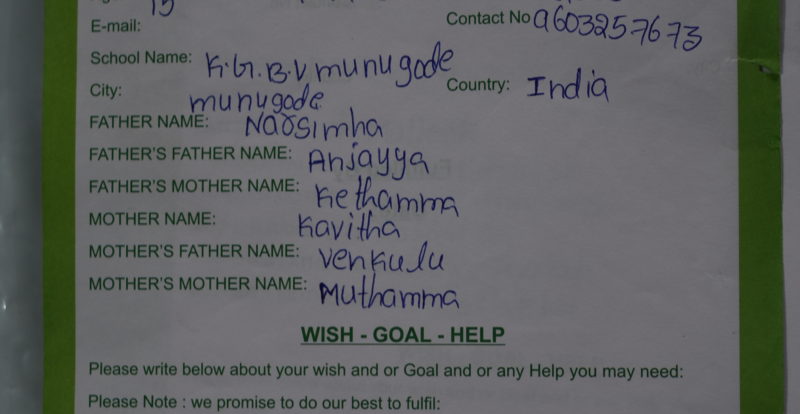 15
E-mail:
Contact No 9603257673
School Name: K.G.B.V munugode
City: munugode
Country: India
FATHER NAME: Narsimha
FATHER'S FATHER NAME: Anjayya
FATHER'S MOTHER NAME: Kethamma
MOTHER NAME: Kavitha
MOTHER'S FATHER NAME: Venkulu
MOTHER'S MOTHER NAME: Muthamma
WISH - GOAL - HELP
Please write below about your wish and or Goal and or any Help you may need:
Please Note : we promise to do our best to fulfil: